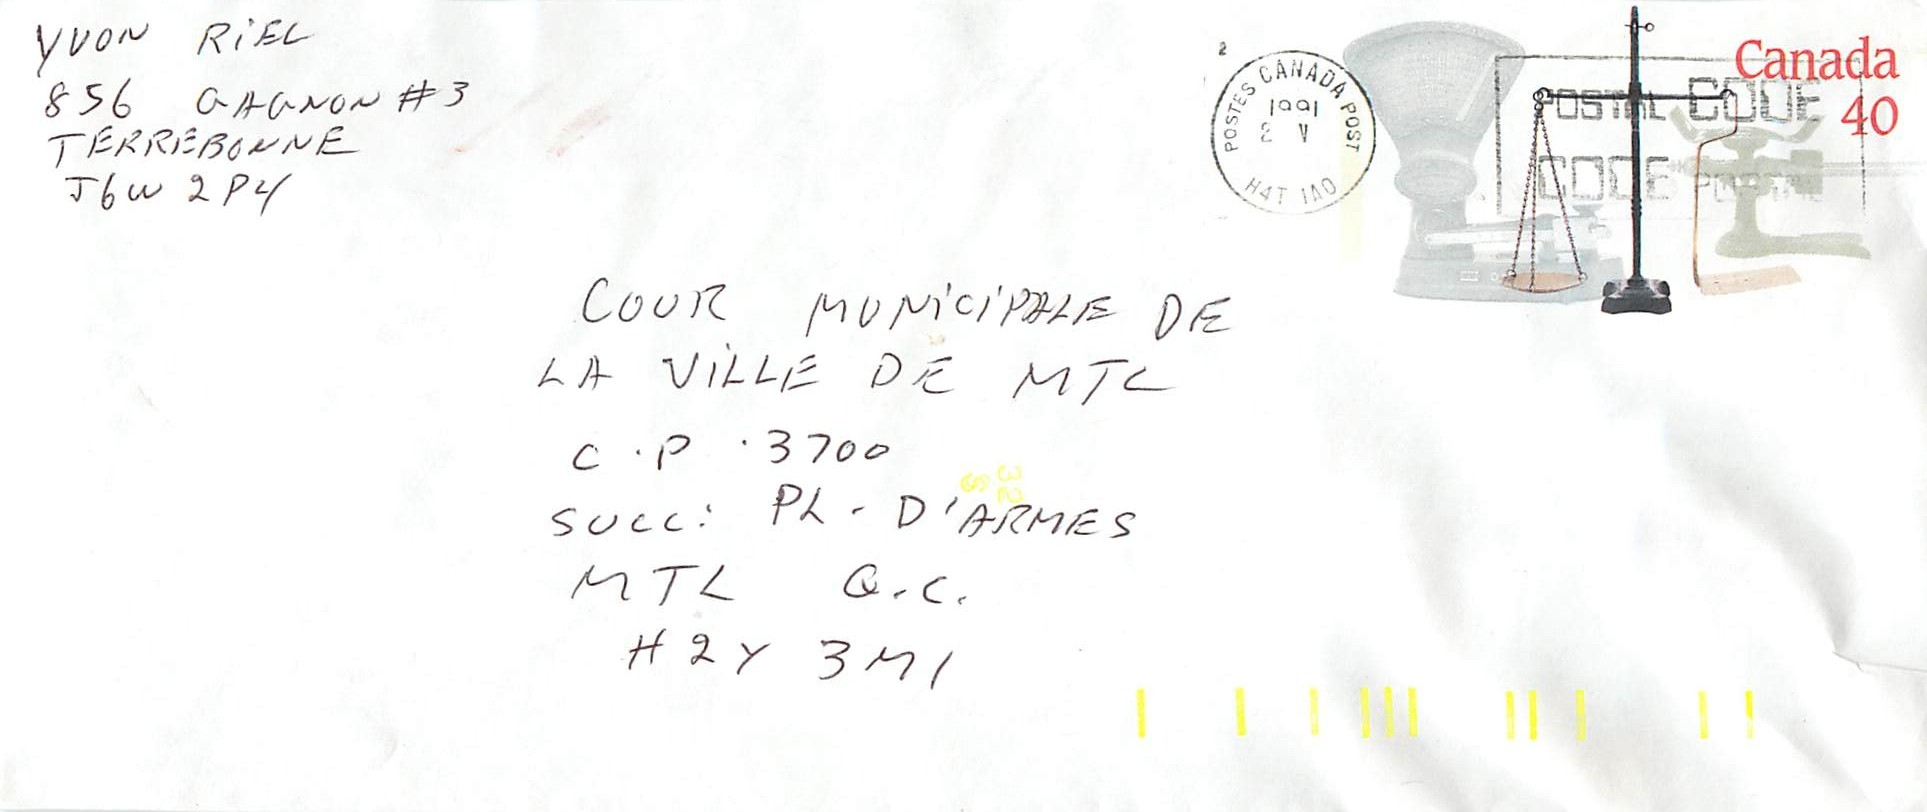 YVON RIEL
856 GAGNON #3
TERREBONNE
J6W 2P4
2
POSTES CANADA POST
1991
2 V
H4T 1A0
POSTAL CODE
CODE POSTAL
Canada
40
COUR MUNICIPALE DE
LA VILLE DE MTL
C.P. 3700
SUCC: PL. D'ARMES
MTL Q.C.
H2Y 3M1
32
8